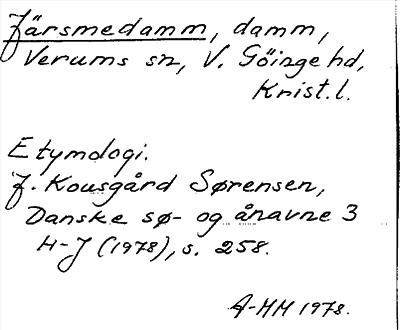 Järsmedamm, damm,
Verums sn, V. Göinge hd,
Krist. l.
Etymologi.
J. Kousgård Sørensen,
Danske sø- og ånavne 3
H-J (1978), s. 258.
1978.